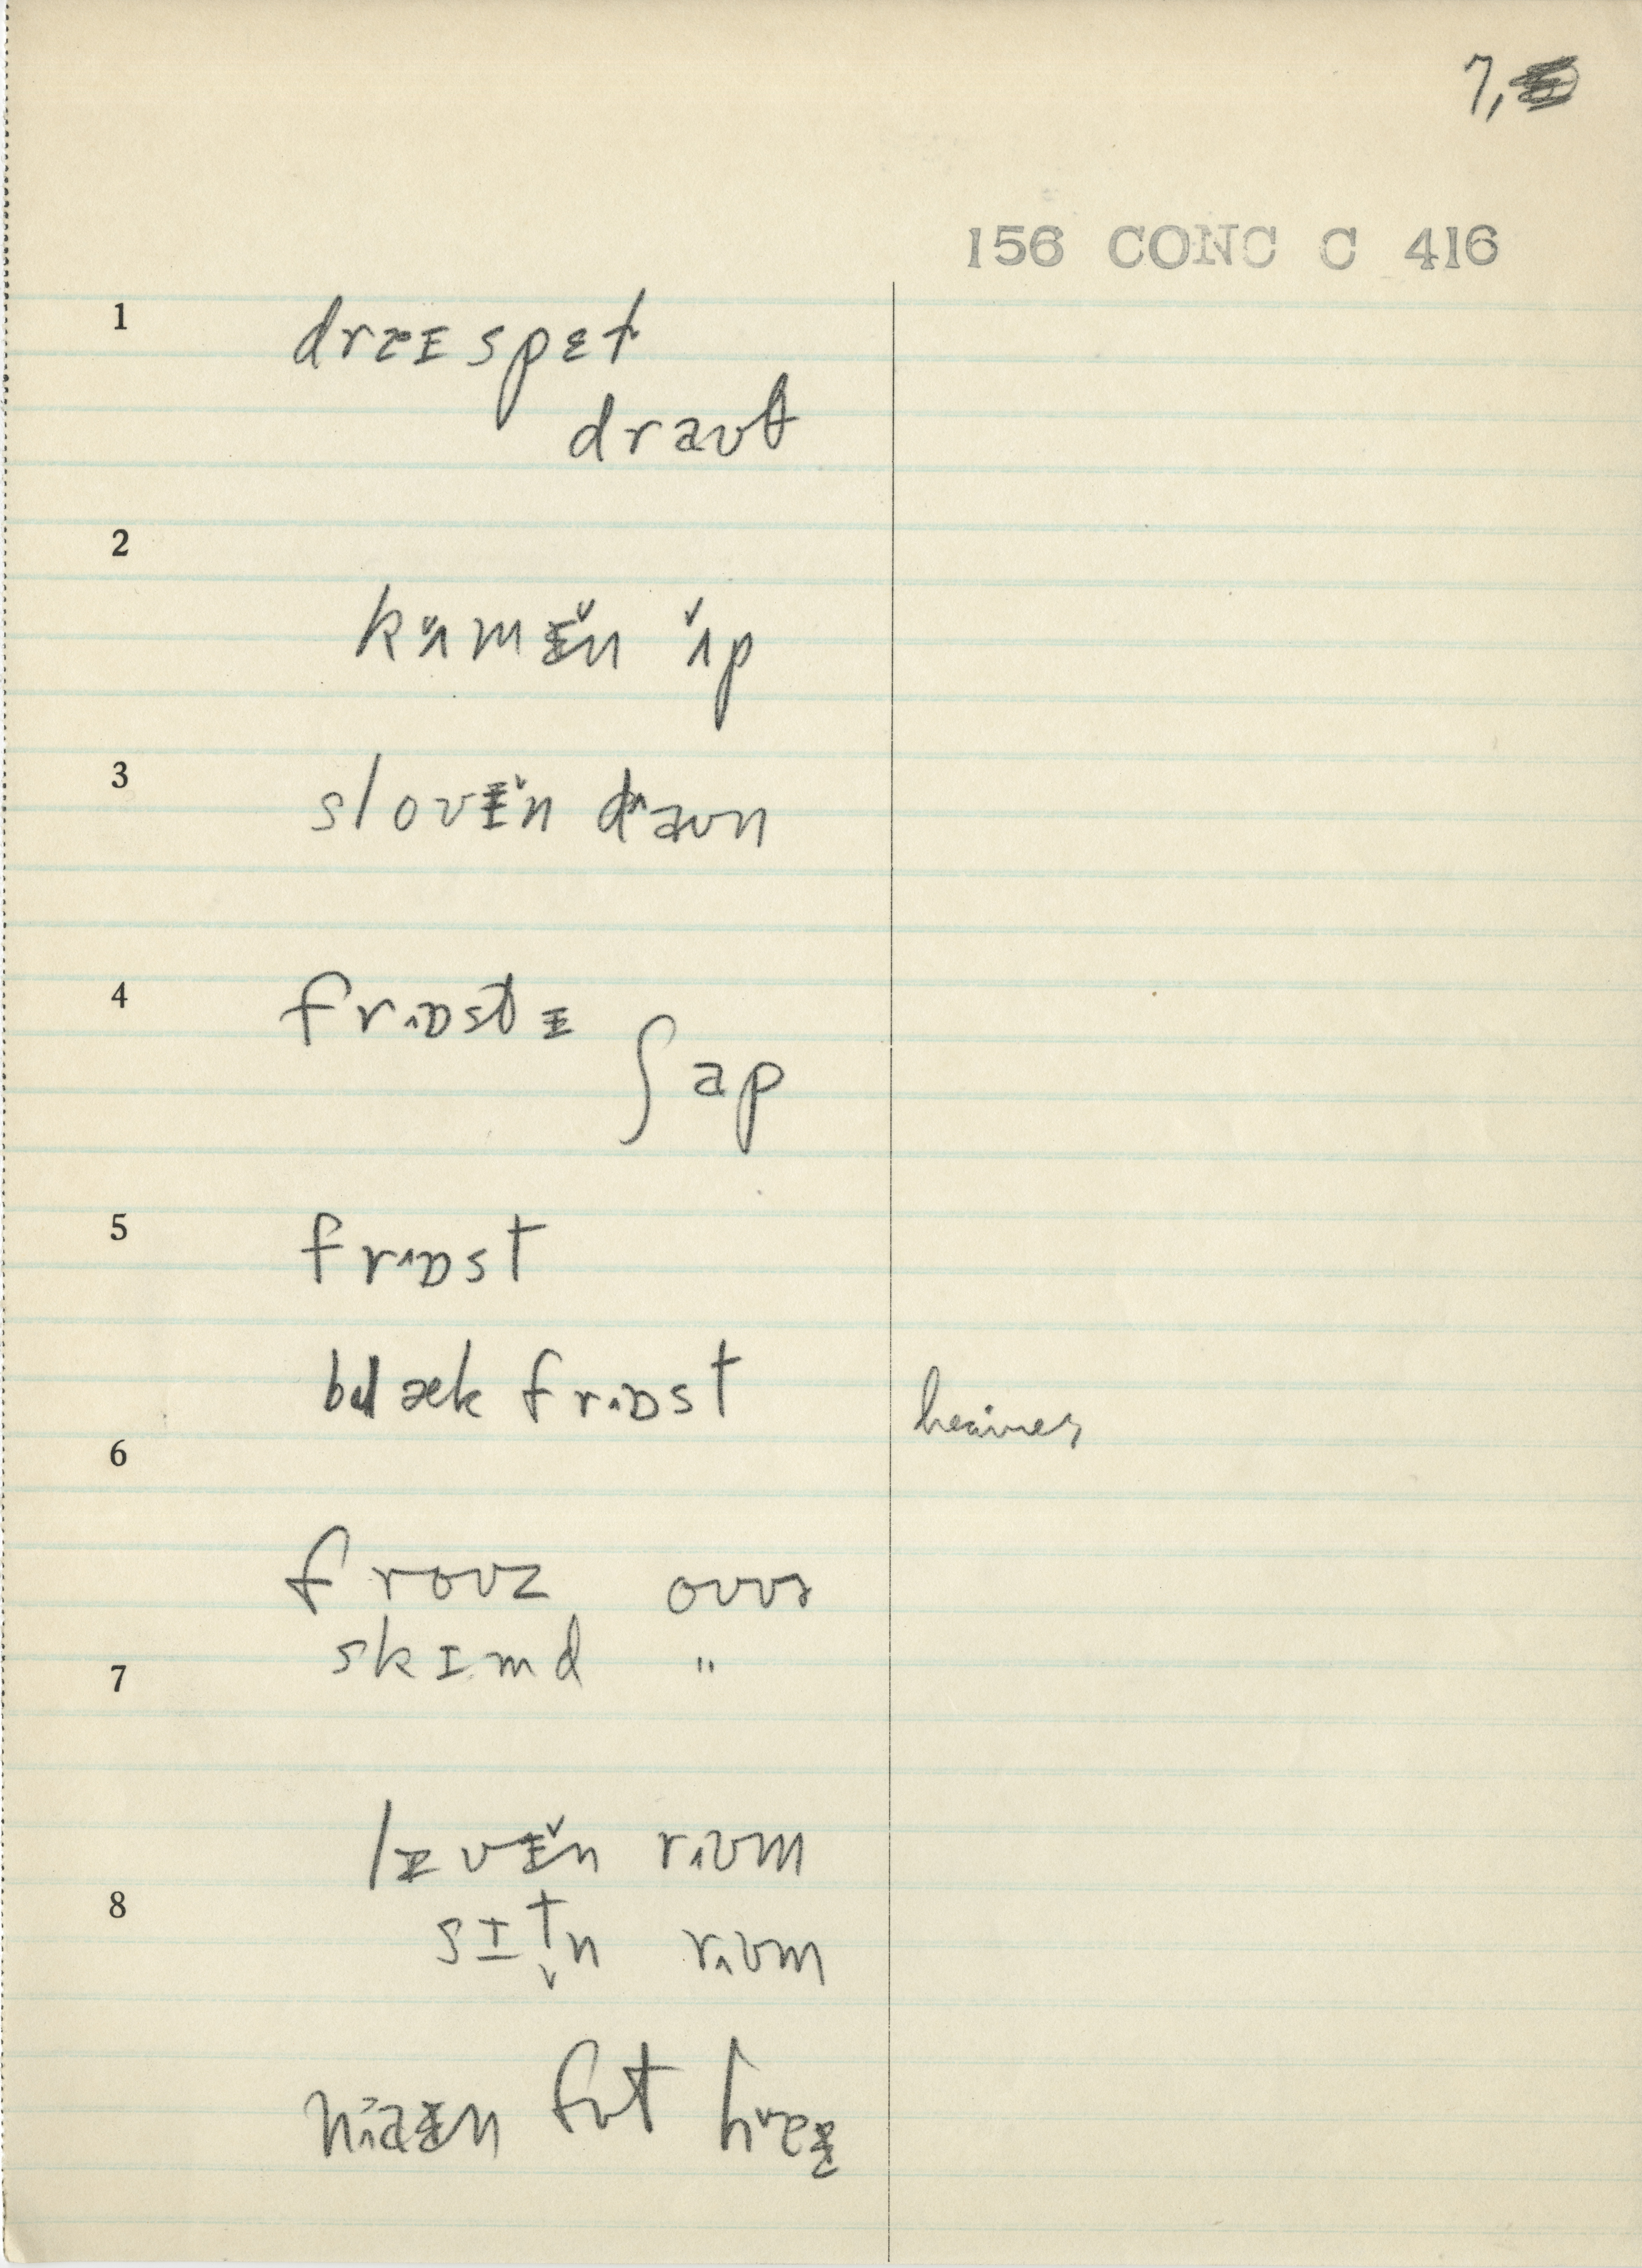 7,
156 CONC C 416
1
drɛɪ spɛt
draʊt
2
kʌmɨ̆n ʌ̆p
3
sloʊɨ̆n daʊn
4
frɒst ɨ
ʃap
5
frɒst
blæk frɒst heavier
6
froʊz oʊvɚ
skɪmd "
7
lɪvɨ̆n rʊm
8
sɪt̬n rʊm
naɨn fʊt